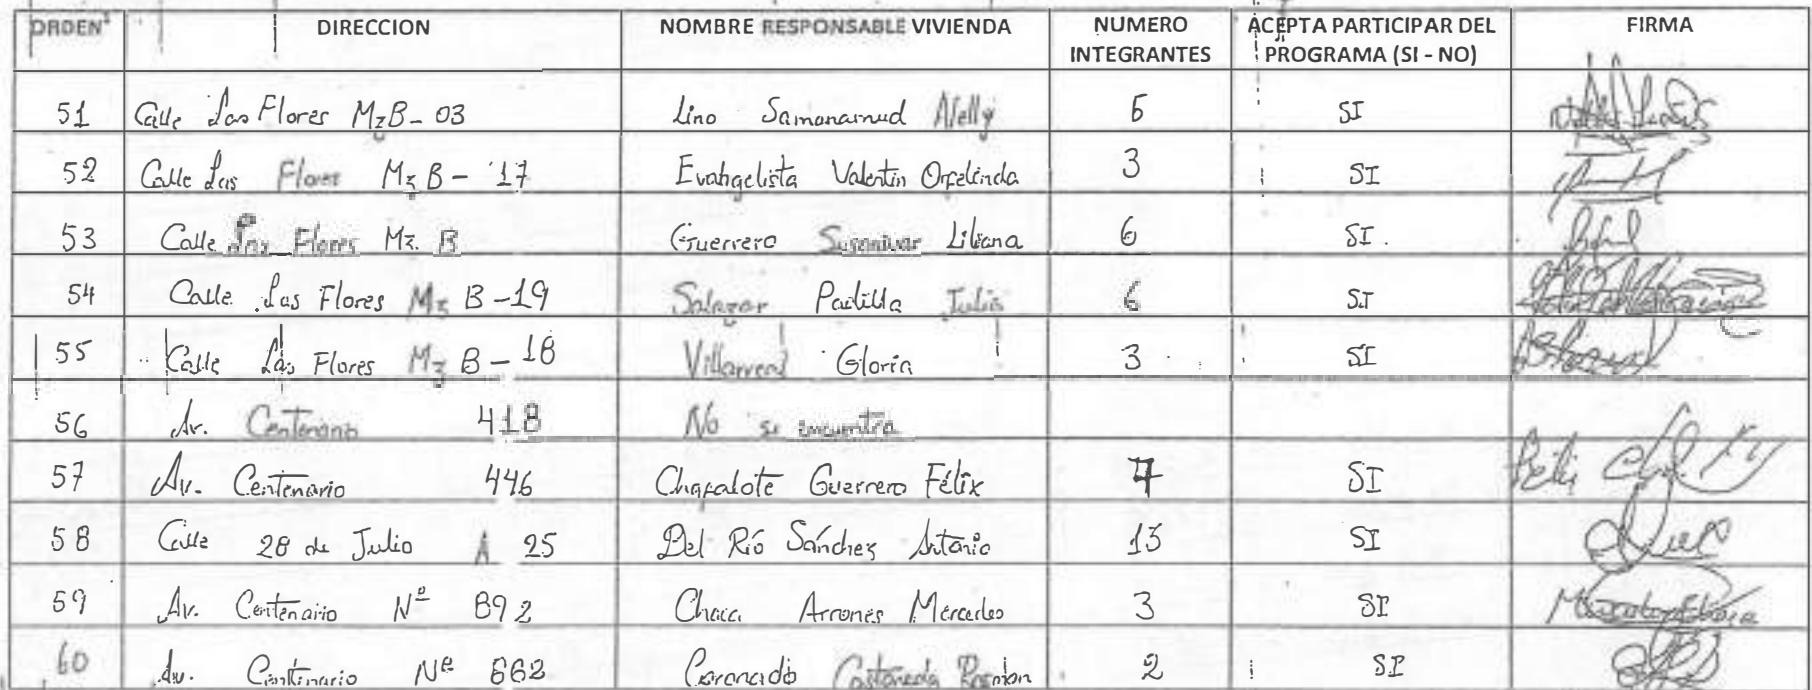 ORDEN DIRECCION NOMBRE RESPONSABLE VIVIENDA NUMERO INTEGRANTES ACEPTA PARTICIPAR DEL PROGRAMA (SI - NO) FIRMA
51 Calle Las Flores Mz B - 03 Lino Samanamud Nelly 5 SI
52 Calle Las Flores Mz B - 17 Evangelista Valentin Orfelinda 3 SI
53 Calle Las Flores Mz. B Guerrero Susanivar Liliana 6 SI.
54 Calle Las Flores Mz B - 19 Salazar Padilla Julia 6 SI
55 Calle Las Flores Mz B - 18 Villarreal Gloria 3 SI
56 Av. Centenario 418 No se encuentra
57 Av. Centenario 446 Guerrero Félix 7 SI
58 Calle 28 de Julio A 25 Del Río Sánchez Antonio 13 SI
59 Av. Centenario Nº 892 Arrones Mercedes 3 SI
60 Av. Centenario Nº 662 Coronado Castañeda 2 SI